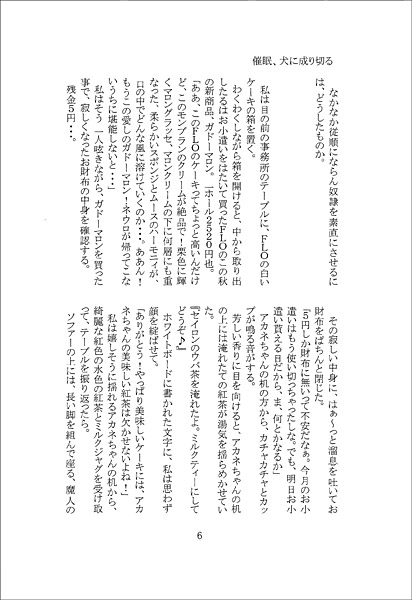 催眠、犬に成り切る
なかなか従順にならん奴隷を素直にさせるに
は、どうしたものか。
私は目の前の事務所のテーブルに、FLOの白い
ケーキの箱を置く。
わくわくしながら箱を開けると、中から取り出
したるはお小遣いをはたいて買ったFLOのこの秋
の新商品、ガドーマロン。一ホール2520円也。
「ああ、このFLOのケーキってちょっと高いんだけ
ど、このモンブランのクリームが絶品で！栗色に輝
くマロングラッセ、マロンクリームの下に何層にも重
なった、柔らかいスポンジとムースのハーモニィが、
口の中でどんな風に溶けていくのか・・・。ああん！
もうこの愛しのガドーマロン！ネウロが帰ってこな
いうちに堪能しないと・・・」
私はそう一人呟きながら、ガドーマロンを買った
事で、寂しくなったお財布の中身を確認する。
残金5円・・・。
その寂しい中身に、はぁ～っと溜息を吐いてお
財布をぱちんと閉じた。
「5円しか財布に無いって不安だなぁ。今月のお小
遣いはもう使い切っちゃったしな。でも、明日お小
遣い貰える日だから、ま、何とかなるか」
アカネちゃんの机の方から、カチャカチャとカッ
プが鳴る音がする。
芳しい香りに目を向けると、アカネちゃんの机
の上には淹れたての紅茶が湯気を揺らめかせてい
る。
『セイロンのウバ茶を淹れたよ。ミルクティーにして
どうぞ♪』
ホワイトボードに書かれた文字に、私は思わず
顔を綻ばせて、
「ありがとう～やっぱり美味しいケーキには、アカ
ネちゃんの美味しい紅茶は欠かせないよね！」
私は嬉しそうに揺れるアカネちゃんの机から、
綺麗な紅色の水色の紅茶とミルクジャグを受け取
って、テーブルを振り返ったら。
ソファーの上には、長い脚を組んで座る、魔人の
6